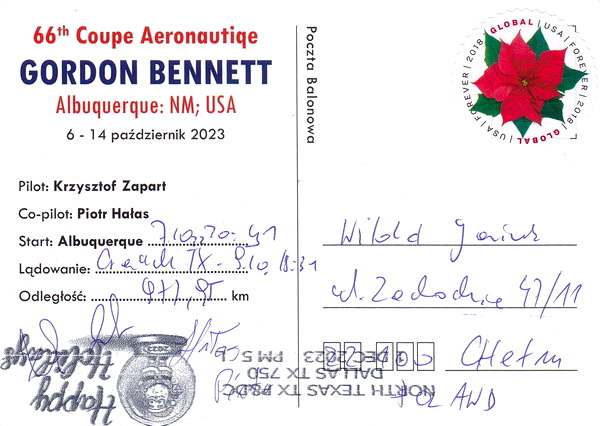 66th Coupe Aeronautiqe
GORDON BENNETT
Albuquerque: NM; USA
6 - 14 październik 2023
Pilot: Krzysztof Zapart
Co-pilot: Piotr Hałas
Start: Albuquerque
Lądowanie: TX - 9.10, 18:31
Odległość: km
Poczta Balonowa
GLOBAL | USA | FOREVER | 2018 | GLOBAL | USA | FOREVER | 2018 |
Witold
ul. 47/11
22-100 Chełm
POLAND
NORTH TEXAS TX P&DC
DALLAS TX 750
DEC 2023 PM 5
Happy
Holidays